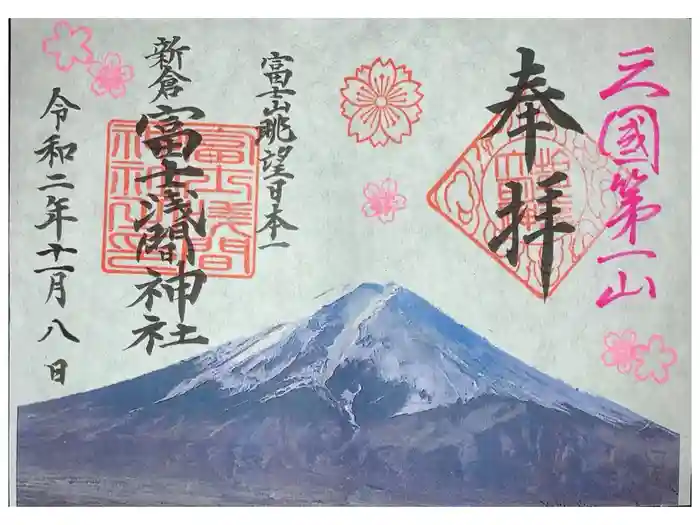 三國第一山
奉拝
富士山眺望日本一
新倉富士浅間神社
令和二年十一月八日